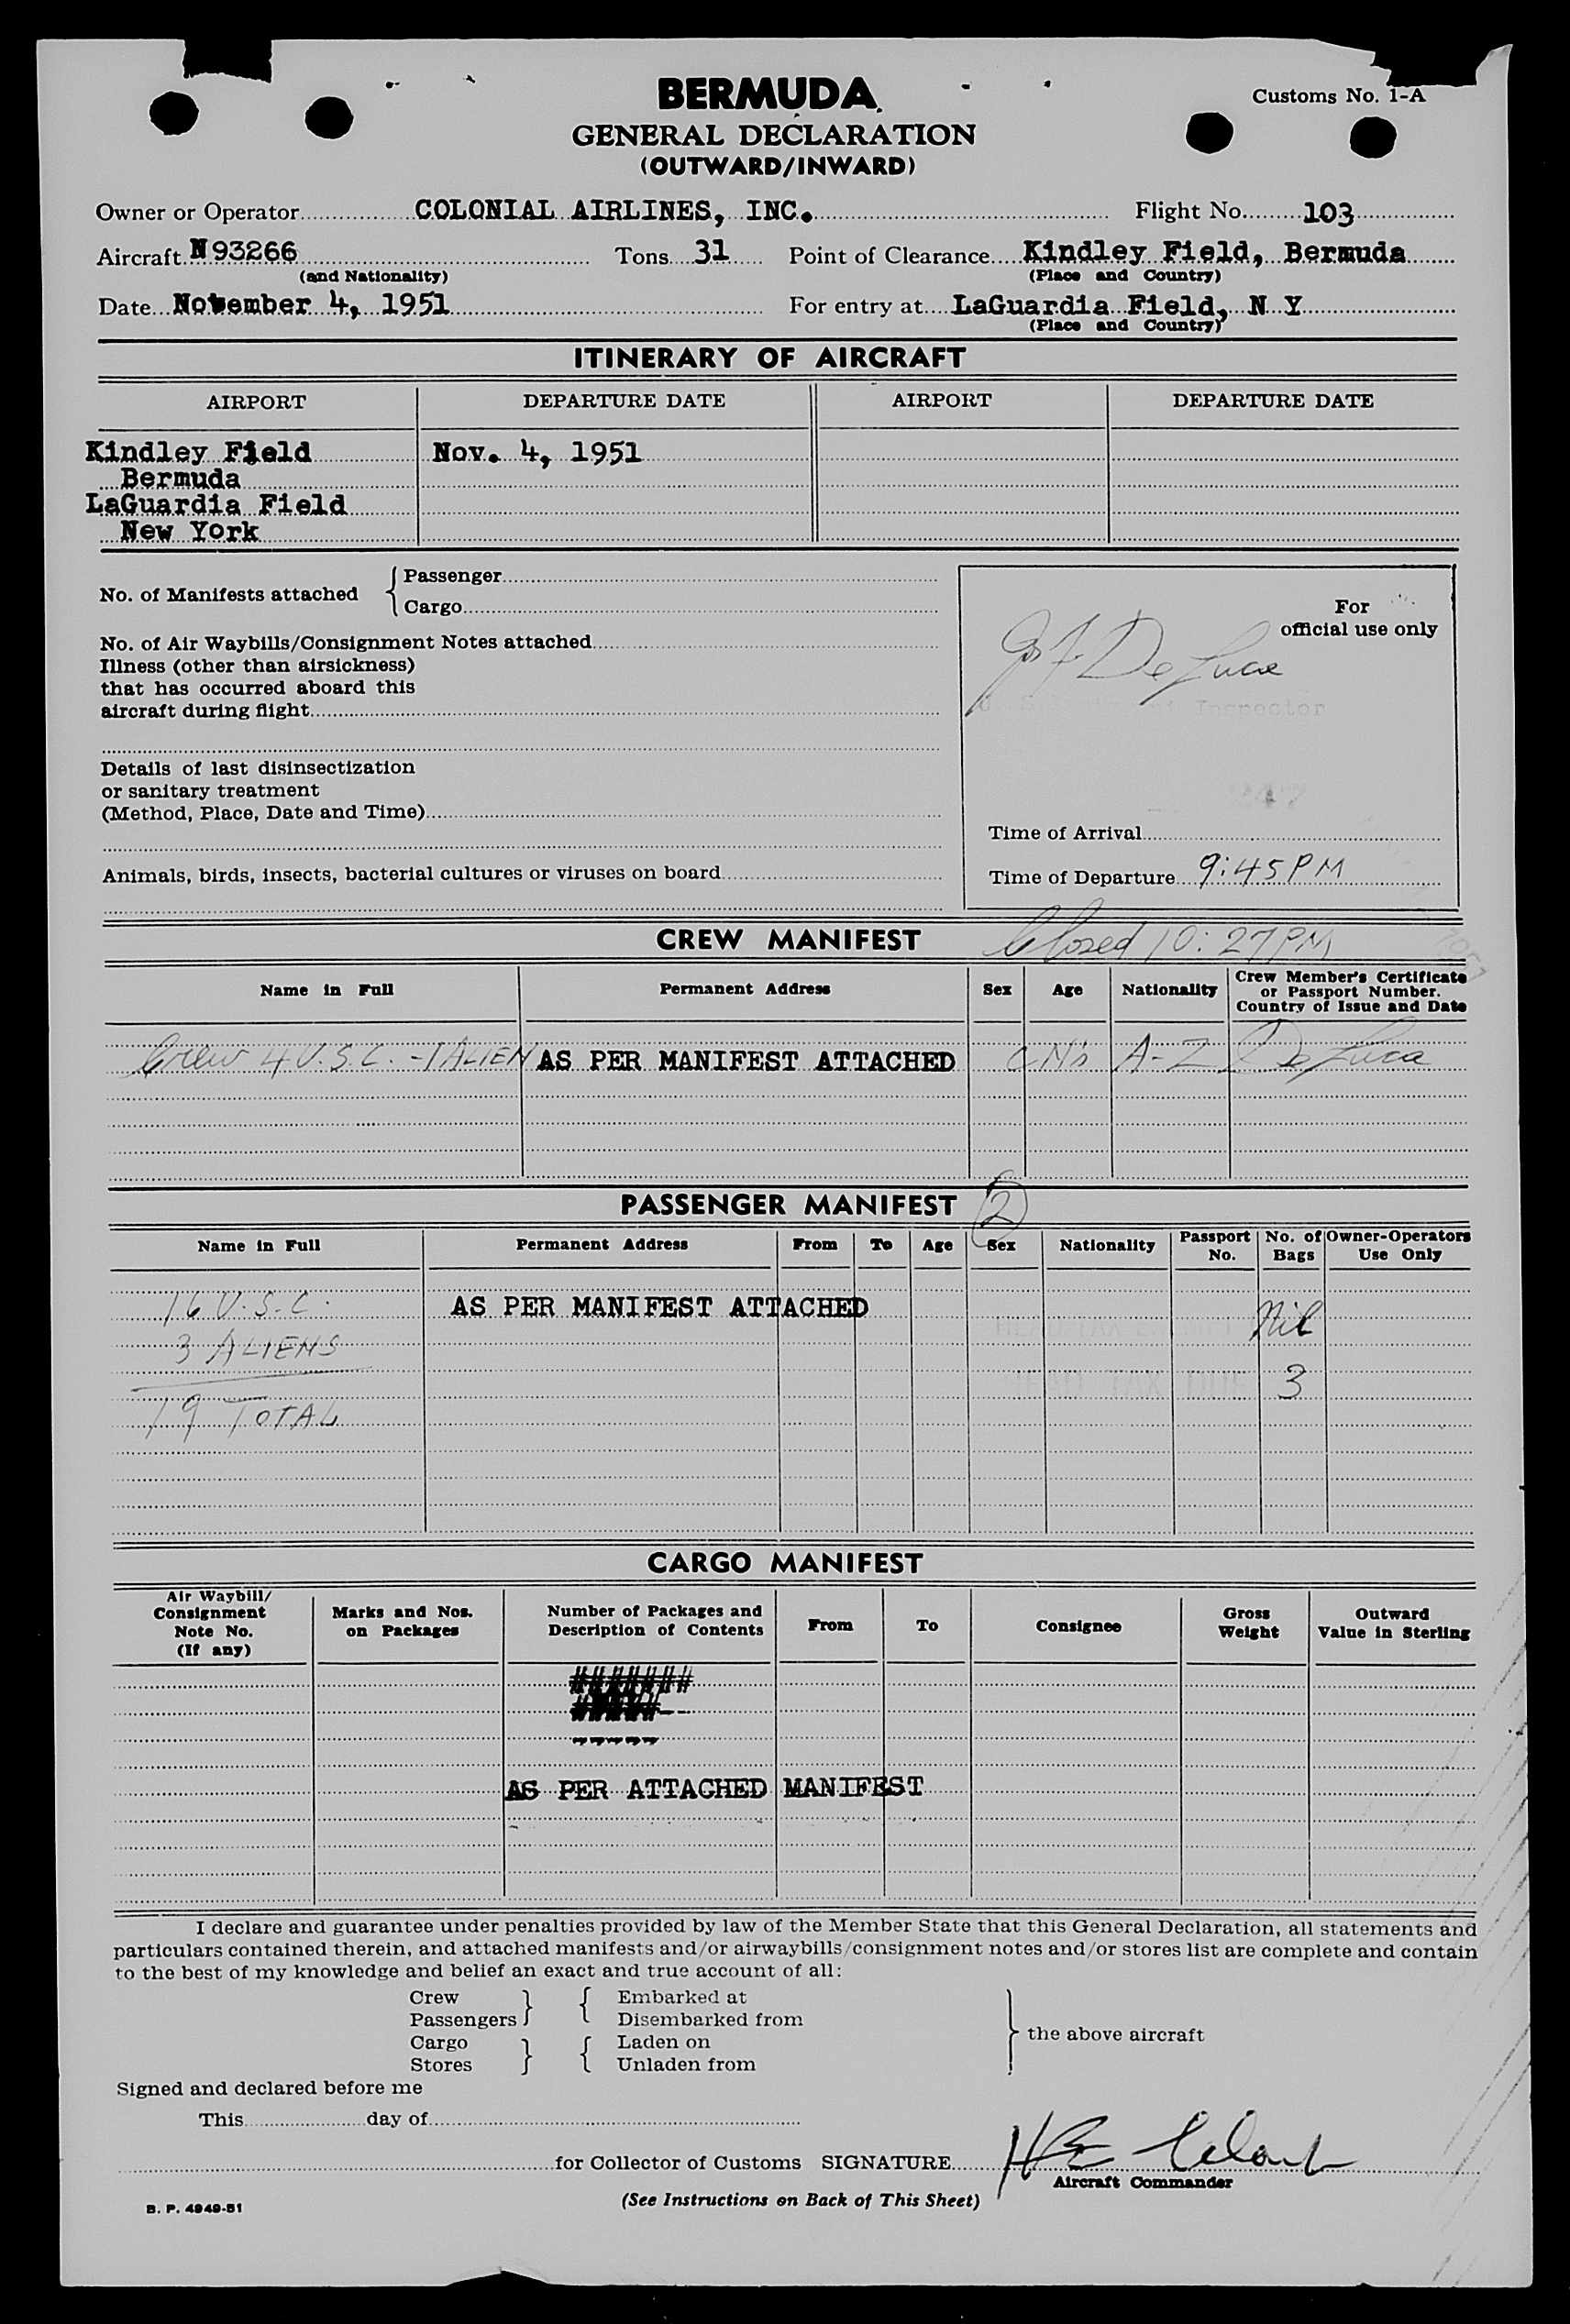 BERMUDA
Customs No. 1-A
GENERAL DECLARATION
(OUTWARD/INWARD)
Owner or Operator COLONIAL AIRLINES, INC. Flight No. 103
Aircraft N93266 Tons 31 Point of Clearance Kindley Field, Bermuda
(and Nationality) (Place and Country)
Date November 4, 1951 For entry at LaGuardia Field, N Y
(Place and Country)
ITINERARY OF AIRCRAFT
AIRPORT DEPARTURE DATE AIRPORT DEPARTURE DATE
Kindley Field Nov. 4, 1951
Bermuda
LaGuardia Field
New York
No. of Manifests attached { Passenger
Cargo
For
official use only
No. of Air Waybills/Consignment Notes attached
De Luca
Illness (other than airsickness)
that has occurred aboard this
aircraft during flight
Inspector
Details of last disinsectization
or sanitary treatment
(Method, Place, Date and Time)
Time of Arrival
Animals, birds, insects, bacterial cultures or viruses on board
Time of Departure 9:45 PM
CREW MANIFEST Closed 10:27 PM
Name in Full Permanent Address Sex Age Nationality Crew Member's Certificate
or Passport Number.
Country of Issue and Date
Crew 4 U.S.C. - 1 ALIEN AS PER MANIFEST ATTACHED A-Z De Luca
PASSENGER MANIFEST 2
Name in Full Permanent Address From To Age Sex Nationality Passport No. No. of Bags Owner-Operators Use Only
16 U.S.C. AS PER MANIFEST ATTACHED Nil
3 ALIENS
HEAD TAX 3
19 TOTAL
CARGO MANIFEST
Air Waybill/
Consignment
Note No.
(If any)
Marks and Nos.
on Packages
Number of Packages and
Description of Contents
From To Consignee
Gross
Weight
Outward
Value in Sterling
AS PER ATTACHED MANIFEST
I declare and guarantee under penalties provided by law of the Member State that this General Declaration, all statements and
particulars contained therein, and attached manifests and/or airwaybills/consignment notes and/or stores list are complete and contain
to the best of my knowledge and belief an exact and true account of all:
Crew } { Embarked at
Passengers Disembarked from
Cargo } { Laden on
Stores Unladen from
} the above aircraft
Signed and declared before me
This day of
for Collector of Customs SIGNATURE
Aircraft Commander
(See Instructions on Back of This Sheet)
B. P. 4949-51